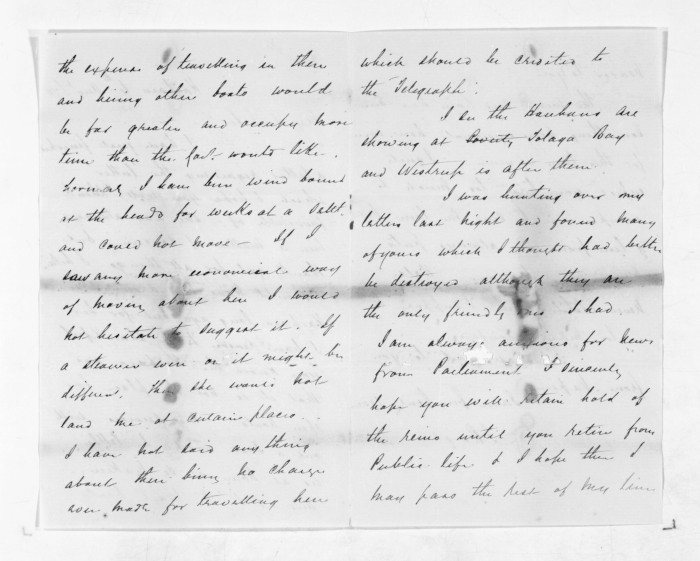 the expense of travelling in them
and hiring other boats would
be far greater and occupy more
time than the Govt. would like.
Formerly I have been wind bound
at the heads for weeks at a
and could not move - If I
saw any more economical way
of moving about here I would
not hesitate to suggest it. If
a steamer were on it might be
different. Then she would not
land me at certain places.
I have not said anything
about their being no charge
ever made for travelling here
which should be credited to
the "Telegraph".
I see the Hauhaus are
showing at Poverty Tolaga Bay
and Westrup is after them
I was hunting over my
letters last night and found many
of yours which I thought had better
be destroyed although they are
the only friendly ones I had.
I am always anxious for news
from Parliament & sincerely
hope you will retain hold of
the reins until you retire from
Public life & I hope then I
may pass the rest of my time